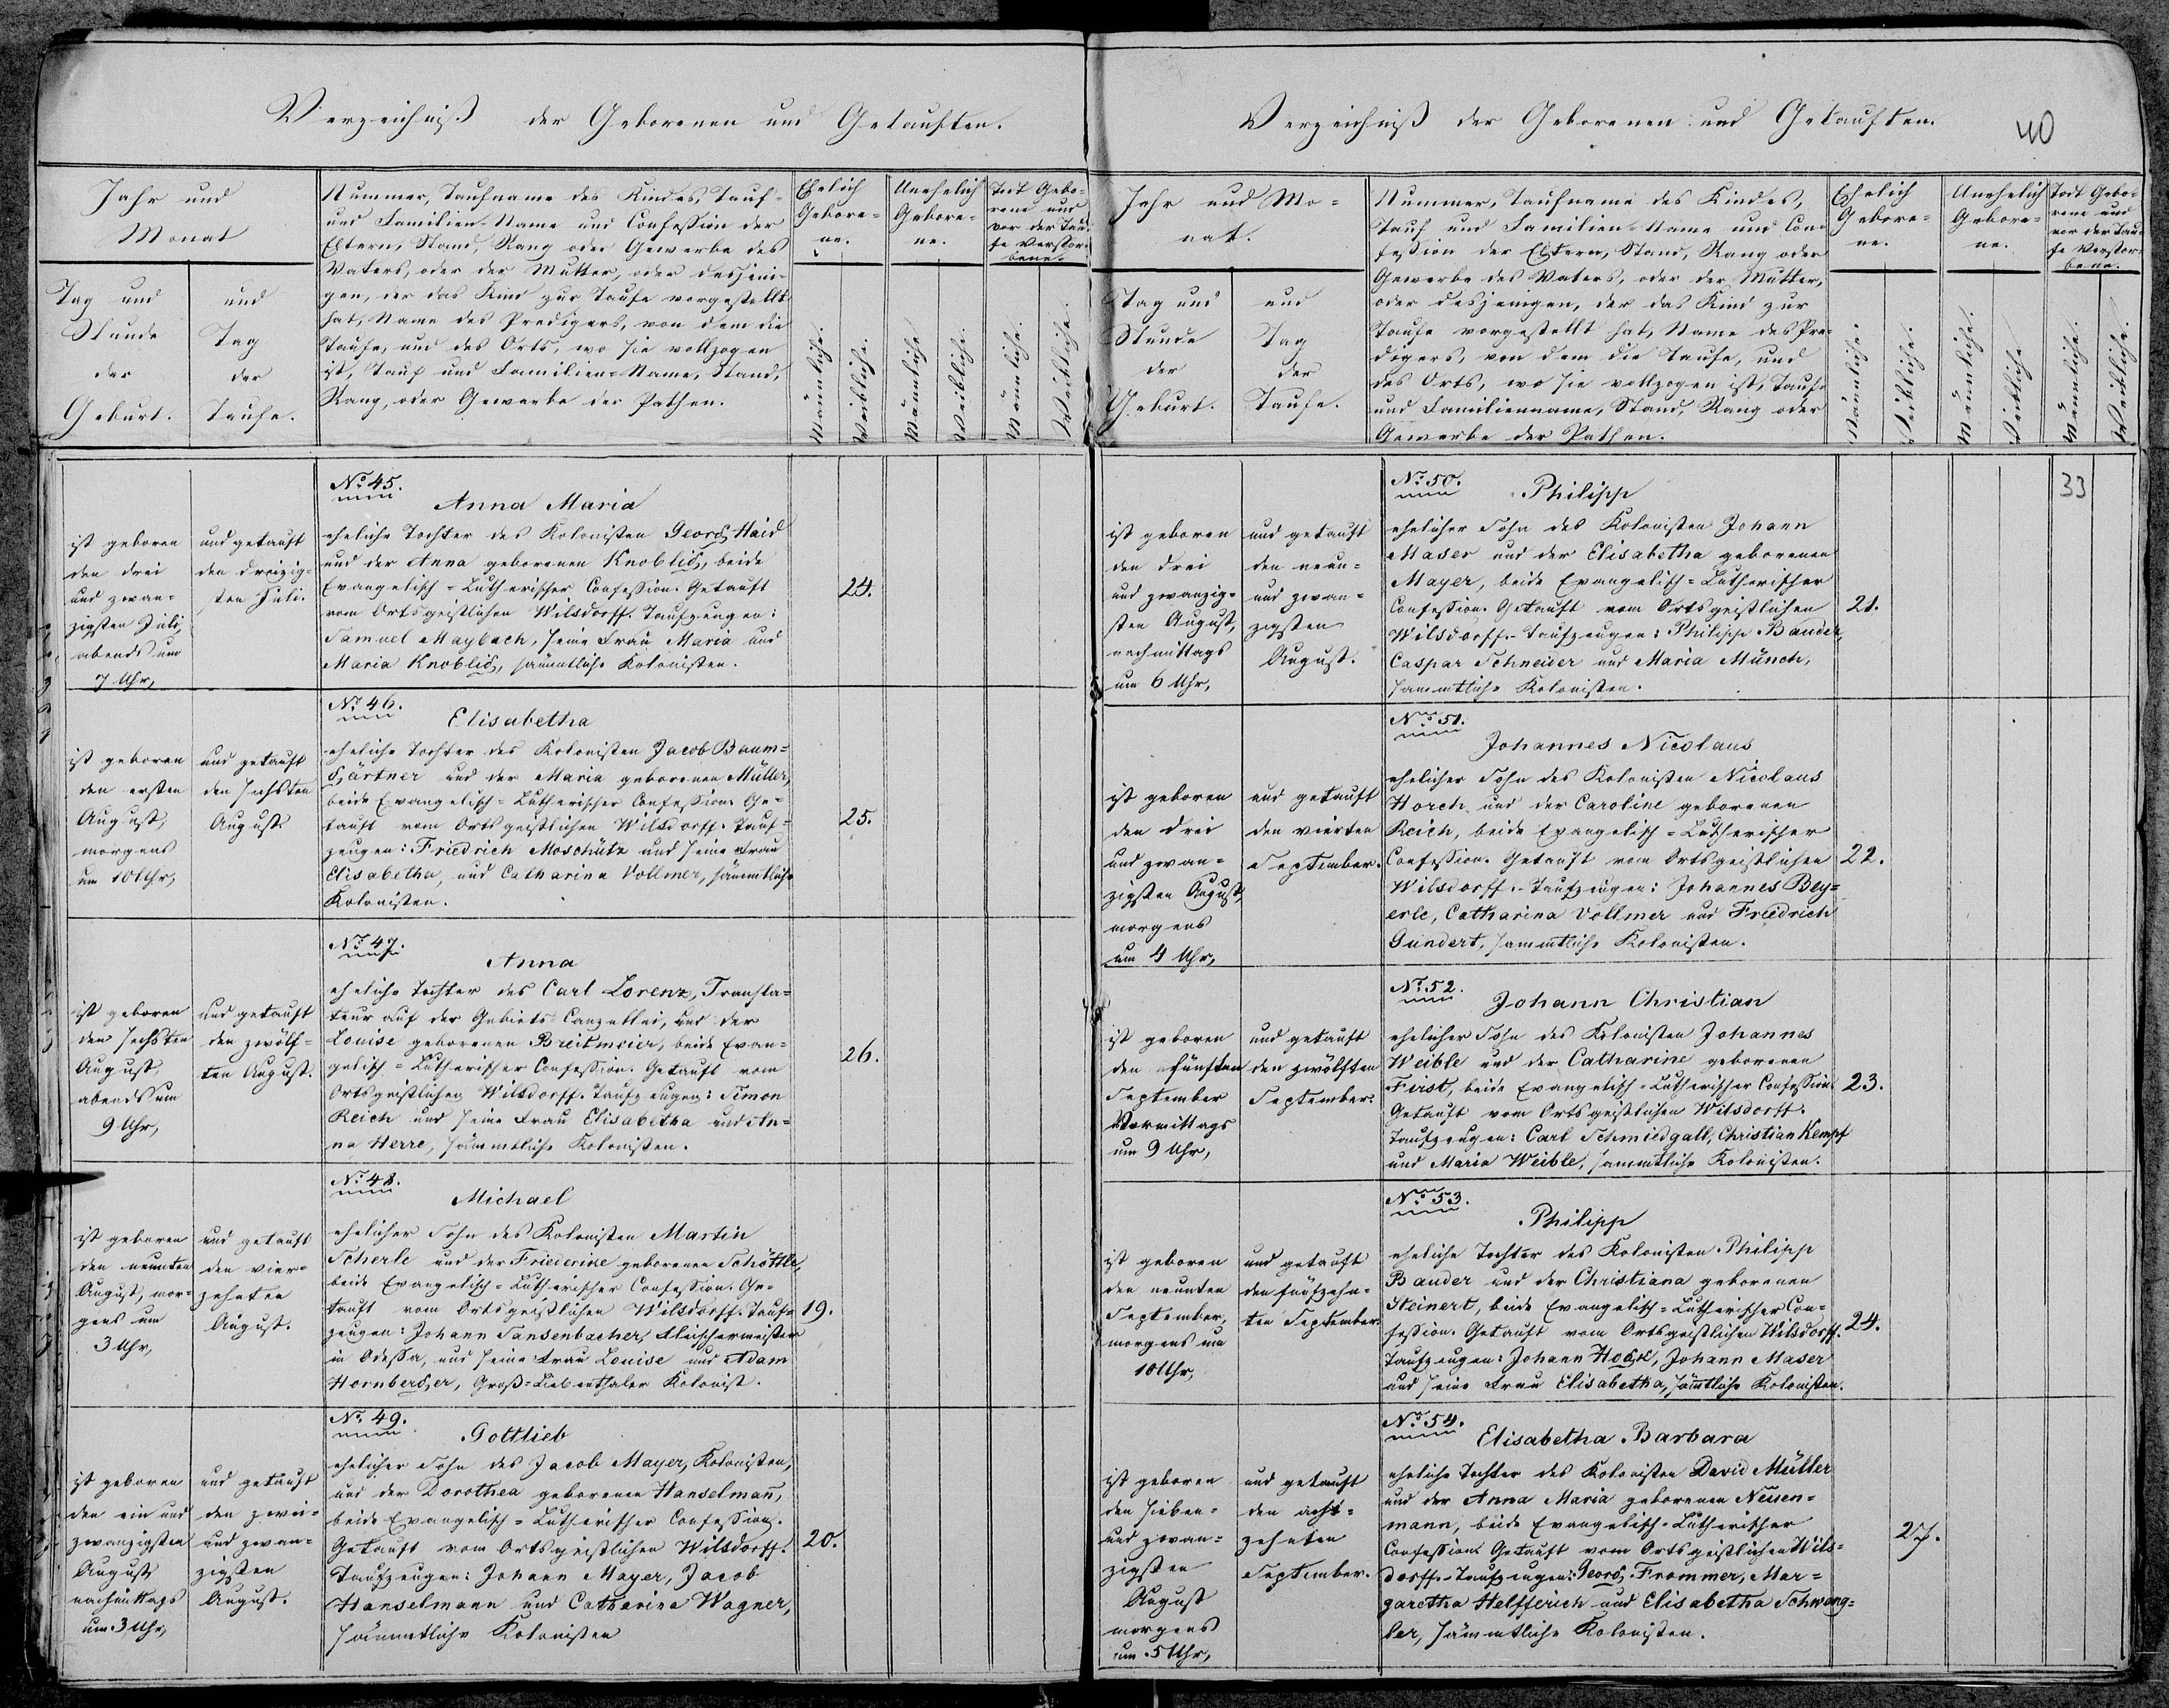 Verzeichniß der Geborenen und Getauften.
Jahr und
Monat
Tag und
Stunde
der
Geburt.
und
Tag
der
Taufe.
Nummer, Taufname des Kindes, Tauf-
und Familien-Name und Confession der
Eltern, Stand, Rang oder Gewerbe des
Vaters, oder der Mutter, oder desjeni-
gen, der das Kind zur Taufe vorgestellt
hat, Name des Predigers, von dem die
Taufe, und des Orts, wo sie vollzogen
ist, Tauf und Familien-Name, Stand,
Rang, oder Gewerbe der Pathen.
Ehelich
Gebore-
ne.
Männliche.
Weibliche.
Unehelich
Gebore-
ne.
Männliche
Weibliche.
Todt Gebo-
rene und
vor der Tau-
fe Verstor-
bene.
Männliche.
Weibliche.
ist geboren
den drei
und zwan-
zigsten Juli,
abends um
7 Uhr,
und getauft
den dreizig-
sten Juli.
No 45.
Anna Maria
eheliche Tochter des Kolonisten Georg Haid
und der Anna geborenen Knoblig, beide
Evangelisch-Lutherischer Confession. Getauft
vom Ortsgeistlichen Wilsdorff. Taufzeugen:
Samuel Maybach, seine Frau Maria und
Maria Knoblig, sämmtliche Kolonisten.
24.
ist geboren
den ersten
August,
morgens
um 10 Uhr,
und getauft
den sechsten
August.
No 46.
Elisabetha
eheliche Tochter des Kolonisten Jacob Baum-
gärtner und der Maria geborenen Müller,
beide Evangelisch-Lutherischer Confession. Ge-
tauft vom Ortsgeistlichen Wilsdorff. Tauf-
zeugen: Friedrich Moschütz und seine Frau
Elisabetha, und Catharina Vollmer, sämmtliche
Kolonisten.
25.
ist geboren
den sechsten
August,
abends um
9 Uhr,
und getauft
den zwölf-
ten August.
No 47.
Anna
eheliche Tochter des Carl Lorenz, Transla-
teur auf der Gebiets-Canzellei, und der
Louise geborenen Breitmeier, beide Evan-
gelisch-Lutherischer Confession. Getauft vom
Ortsgeistlichen Wilsdorff. Taufzeugen: Simon
Reich und seine Frau Elisabetha und An-
na Herre, sämmtliche Kolonisten.
26.
ist geboren
den neunten
August, mor-
gens um
3 Uhr,
und getauft
den vier-
zehnten
August.
No 48.
Michael
ehelicher Sohn des Kolonisten Martin
Scherle und der Friederike geborenen Schöttle,
beide Evangelisch-Lutherischer Confession. Ge-
tauft vom Ortsgeistlichen Wilsdorff. Tauf-
zeugen: Johann Sansenbacher, Fleischermeister
in Odessa, und seine Frau Louise und Adam
Hornberger, Groß-Liebenthaler Kolonist.
19.
ist geboren
den ein und
zwanzigsten
August
nachmittags
um 3 Uhr,
und getauft
den zwei-
und zwan-
zigsten
August.
No 49.
Gottlieb
ehelicher Sohn des Jacob Mayer, Kolonisten,
und der Dorothea geborenen Hanselmañ,
beide Evangelisch-Lutherischer Confession.
Getauft vom Ortsgeistlichen Wilsdorff.
Taufzeugen: Johann Mayer, Jacob
Hanselmann und Catharina Wagner,
sämmtliche Kolonisten
20.
Verzeichniß der Geborenen und Getauften.
40
Jahr und Mo-
nat.
Tag und
Stunde
der
Geburt.
und
Tag
der
Taufe.
Nummer, Taufname des Kindes,
Tauf und Familien-Name und Con-
fession der Eltern, Stand, Rang oder
Gewerbe des Vaters, oder der Mutter,
oder desjenigen, der das Kind zur
Taufe vorgestellt hat, Name des Pre-
digers, von dem die Taufe, und
des Orts, wo sie vollzogen ist, Tauf-
und Familienname, Stand, Rang oder
Gewerbe der Pathen.
Ehelich
Gebore-
ne.
Männliche.
Weibliche.
Unehelich
Gebore-
ne.
Männliche.
Weibliche
Todt Gebo-
rene und
vor der Tau-
fe Verstor-
bene.
Männliche.
Weibliche.
33
ist geboren
den drei
und zwanzig-
sten August,
nachmittags
um 6 Uhr,
und getauft
den neun-
und zwan-
zigsten
August.
No 50.
Philipp
ehelicher Sohn des Kolonisten Johann
Maser und der Elisabetha geborenen
Mayer, beide Evangelisch-Lutherischer
Confession. Getauft vom Ortsgeistlichen
Wilsdorff. Taufzeugen: Philipp Bauder,
Caspar Schneider und Maria Münch,
sammtliche Kolonisten.
21.
ist geboren
den drei
und zwan-
zigsten August,
morgens
um 4 Uhr,
und getauft
den vierten
September.
No 51.
Johannes Nicolaus
ehelicher Sohn des Kolonisten Nicolaus
Horch und der Caroline geborenen
Reich, beide Evangelisch-Lutherischer
Confession. Getauft vom Ortsgeistlichen
Wilsdorff. Taufzeugen: Johannes Bey-
erle, Catharina Vollmer und Friedrich
Gundert, sammtliche Kolonisten.
22.
ist geboren
den fünften
September
Vormittags
um 9 Uhr,
und getauft
den zwölften
September.
No 52.
Johann Christian
ehelicher Sohn des Kolonisten Johannes
Weible und der Catharine geborenen
First, beide Evangelisch-Lutherischer Confession.
Getauft vom Ortsgeistlichen Wilsdorff.
Taufzeugen: Carl Schmiedgall, Christian Kempf
und Maria Weible, sammtliche Kolonisten.
23.
ist geboren
den neunten
September,
morgens um
10 Uhr,
und getauft
den fünfzehn-
ten September.
No 53.
Philipp
eheliche Tochter des Kolonisten Philipp
Bauder und der Christiana geborenen
Steinert, beide Evangelisch-Lutherischer Con-
fession. Getauft vom Ortsgeistlichen Wilsdorff.
Taufzeugen: Johann Johann Maser
und seine Frau Elisabetha, sämtliche Kolonisten.
24.
ist geboren
den sieben-
und zwan-
zigsten
August
morgens
um 5 Uhr,
und getauft
den acht-
zehnten
September.
No 54.
Elisabetha Barbara
eheliche Tochter des Kolonisten David Müller
und der Anna Maria geborenen Neuen-
mann, beide Evangelisch-Lutherischer
Confession. Getauft vom Ortsgeistlichen Wils-
dorff. Taufzeugen: Georg Frommer, Mar-
garetha Helfferich und Elisabetha Schweng-
ler, sämmtliche Kolonisten.
27.